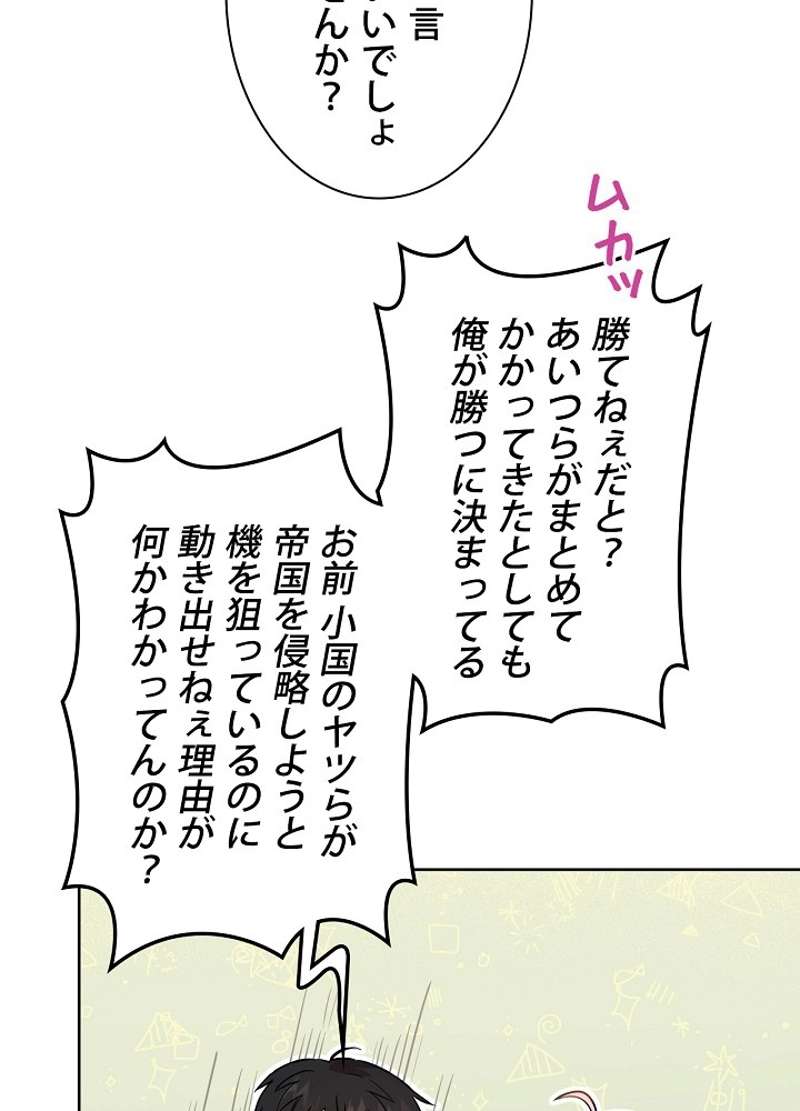 言
いでしょ
んか？
ムカッ
勝てねぇだと？
あいつらがまとめて
かかってきたとしても
俺が勝つに決まってる
お前 小国のヤツらが
帝国を侵略しようと
機を狙っているのに
動き出せねぇ理由が
何かわかってんのか？